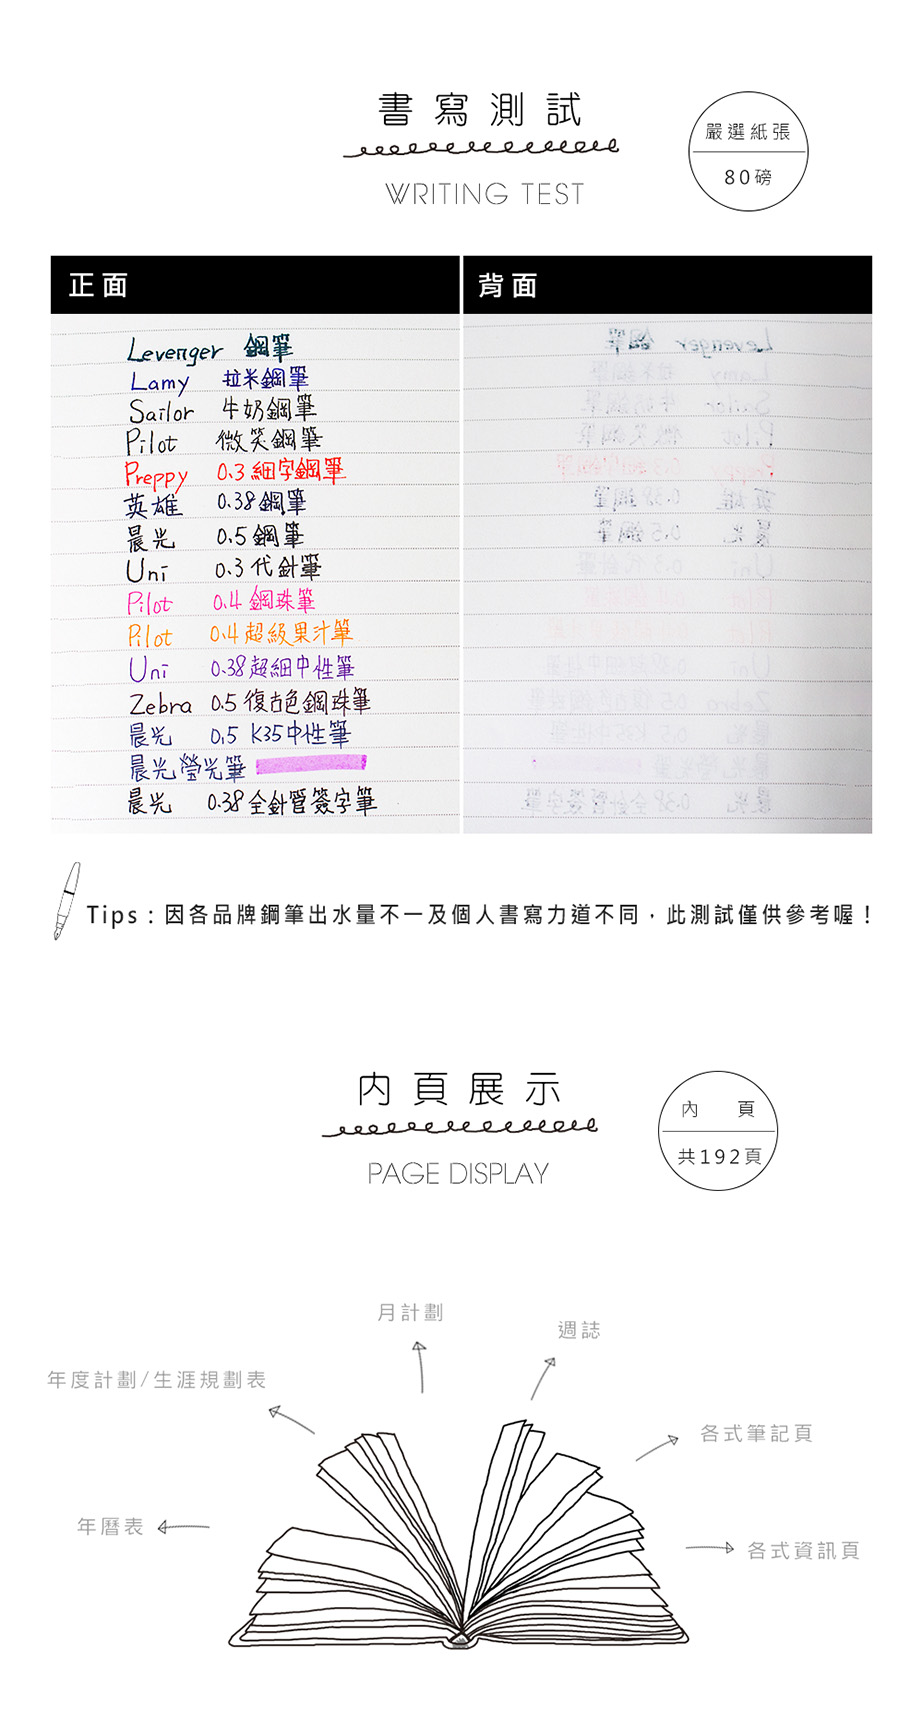 書寫測試
WRITING TEST
嚴選紙張
80磅
正面
背面
Levenger 鋼筆
Lamy 拉米鋼筆
Sailor 牛奶鋼筆
Pilot 微笑鋼筆
Preppy 0.3 細字鋼筆
英雄 0.38 鋼筆
晨光 0.5 鋼筆
Uni 0.3 代針筆
Pilot 0.4 鋼珠筆
Pilot 0.4 超級果汁筆
Uni 0.38 超細中性筆
Zebra 0.5 復古色鋼珠筆
晨光 0.5 K35中性筆
晨光螢光筆
晨光 0.38 全針管簽字筆
Tips：因各品牌鋼筆出水量不一及個人書寫力道不同，此測試僅供參考喔！
內頁展示
PAGE DISPLAY
內頁
共192頁
月計劃
週誌
年度計劃/生涯規劃表
各式筆記頁
年曆表
各式資訊頁